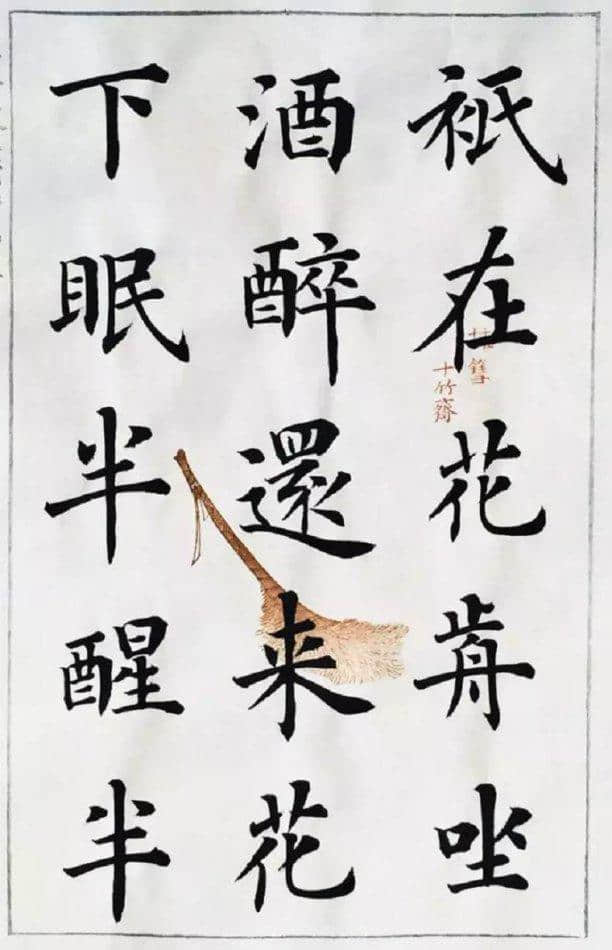 祇在花歬坐
酒醉還来花
下眠半醒半
十竹齋